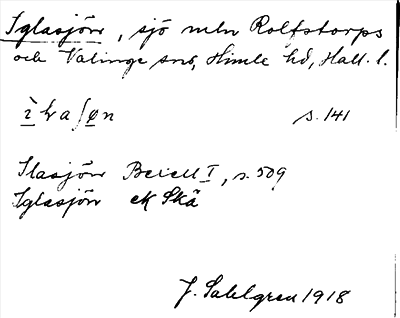 Iglasjön, sjö mln Rolfstorps
och Valinge snr, Himle hd, Hall. l.
s. 141
Ilasjön Bexell I, s. 509
Iglasjön ek Skä
J. Sahlgren 1918